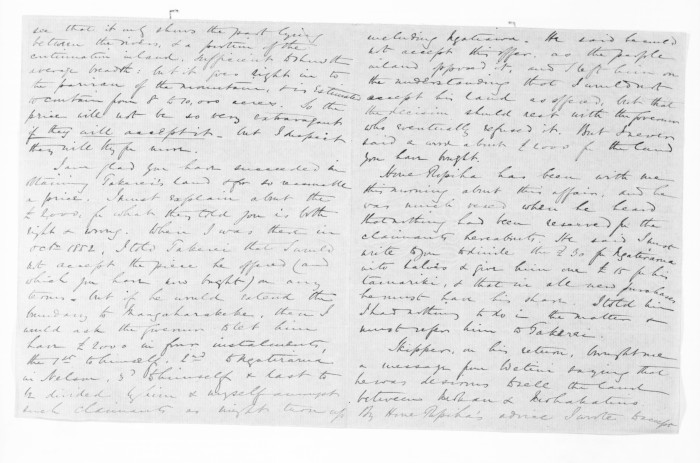 see that it only shows the part lying
between the rivers, & a portion of the
continuation inland, sufficient to shew the
average breadth: but it goes right in to
the of the mountains, & is estimated
to contain from 8 to 10,000 acres. So the
price will not be so very extravagant
if they will accept it - but I expect
they will try for more.
I am glad you have succeeded in
obtaining Takerei's land for so reasonable
a price. I must explain about the
£2000, for what they told you is both
right & wrong. When I was there in
octr. 1852, I told Takerei that I would
not accept the piece he offered (and
which you have now bought) on any
terms - but if he would extend the
boundary to I
would ask the governor to let him
have £2000 in four instalments,
the 1st to himself, 2nd to Ngatirarua
in Nelson, 3d to himself & last to
be divided by him & myself amongst
such claimants as might turn up
including Ngatiawa. He said he could
not accept this offer, as the people
inland opposed it, and I left him on
the understanding that I would not
accept his land as offered, but that
the decision should rest with the governor
who eventually refused it. But I never
said a word about £2000 for the land
you have bought.
Hone Ropiha has been with me
this morning about this affair, and he
was much vexed when he heard
that nothing had been reserved for the
claimants hereabouts. He said I must
write to you to divide the £30 for Ngatirarua
into halves & give him one £15 for his
tamariki, & that in all new purchases
he must have his share. I told him
I had nothing to do in the matter &
must refer him to Takerei.
Skipper, on his return, brought me
a message from saying that
he was desirous to sell the land
between Mokau & Mohakatino
By Hone Ropiha's advice I wrote